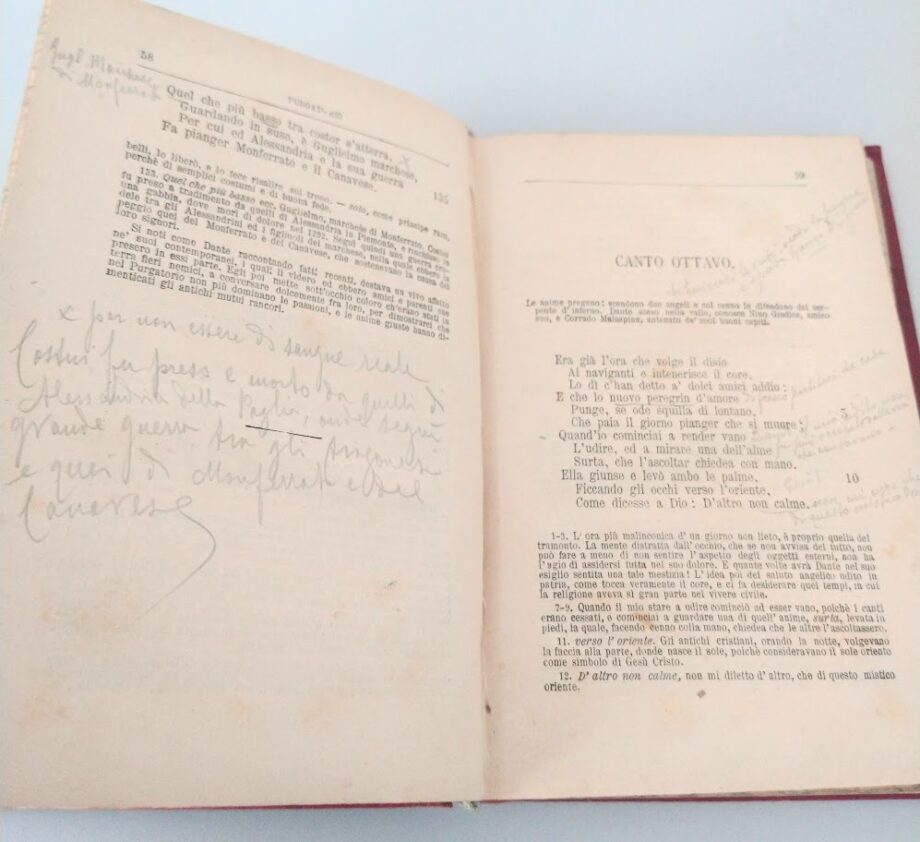 58
PURGATORIO
Gugl. Marchese
di Monferrato
Quel che più basso tra costor s'atterra,
Guardando in suso, è Guglielmo marchese,
Per cui ed Alessandria e la sua guerra
Fa pianger Monferrato e il Canavese.
135
belli, lo liberò, e lo fece risalire sul trono. — solo, come principe raro,
perchè di semplici costumi e di buona fede.
133. Quel che più basso ecc. Guglielmo, marchese di Monferrato. Costui
fu preso a tradimento da quelli di Alessandria in Piemonte, e rinchiuso in
una gabbia, dove morì di dolore nel 1292. Seguì quindi una guerra cru-
dele tra gli Alessandrini ed i figliuoli del marchese, nella quale ebbero la
peggio quei del Monferrato e del Canavese, che sostenevano la causa dei
loro signori.
Si noti come Dante raccontando fatti recenti, destava un vivo affetto
ne' suoi contemporanei, i quai li videro ed ebbero amici e parenti che
presero in essi parte. Egli poi mette sott'occhio coloro ch'erano stati in
terra fieri nemici, a conversare dolcemente fra loro, per dimostrarci che
nel Purgatorio non più dominano le passioni, e le anime giuste hanno di-
menticati gli antichi mutui rancori.
x per non essere di sangue reale
Costui fu preso e morto da quelli di
Alessandria della Paglia, onde seguì
grande guerra tra gli Aragonesi
e quei di Monferrato e del
Canavese
59
CANTO OTTAVO.
Le anime pregano: scendono due angeli e col cenno le difendono dal ser-
pente d'inferno. Dante sceso nella valle, conosce Nino Giudice, amico
suo, e Corrado Malaspina, antenato de' suoi buoni ospiti.
Era già l'ora che volge il disio
Ai naviganti e intenerisce il core,
Lo dì c'han detto a' dolci amici addio;
E che lo nuovo peregrin d'amore di fresco partitosi da casa
Punge, se ode squilla di lontano, 5
Che paia il giorno pianger che si muore:
Quand'io cominciai a render vano
L'udire, ed a mirare una dell'alme
Surta, che l'ascoltar chiedea con mano.
Ella giunse e levò ambo le palme, 10
Ficcando gli occhi verso l'oriente,
Come dicesse a Dio: D'altro non calme.
1-3. L'ora più malinconica d'un giorno non lieto, è proprio quella del
tramonto. La mente distratta dall'occhio, che se non avvisa del tutto, non
può fare a meno di non sentire l'aspetto degli oggetti esterni, non ha
l'agio di assidersi tutta nel suo dolore. E quante volte avrà Dante nel suo
esiglio sentita una tale mestizia! L'idea poi del saluto angelico udito in
patria, come tocca veramente il core, e ci fa desiderare quei tempi, in cui
la religione aveva sì gran parte nel vivere civile.
7-9. Quando il mio stare a udire cominciò ad esser vano, poichè i canti
erano cessati, e cominciai a guardare una di quell'anime, surta, levata in
piedi, la quale, facendo cenno colla mano, chiedea che le altre l'ascoltassero.
11. verso l'oriente. Gli antichi cristiani, orando la notte, volgevano
la faccia alla parte, donde nasce il sole, poichè consideravano il sole oriente
come simbolo di Gesù Cristo.
12. D'altro non calme, non mi diletto d'altro, che di questo mistico
oriente.